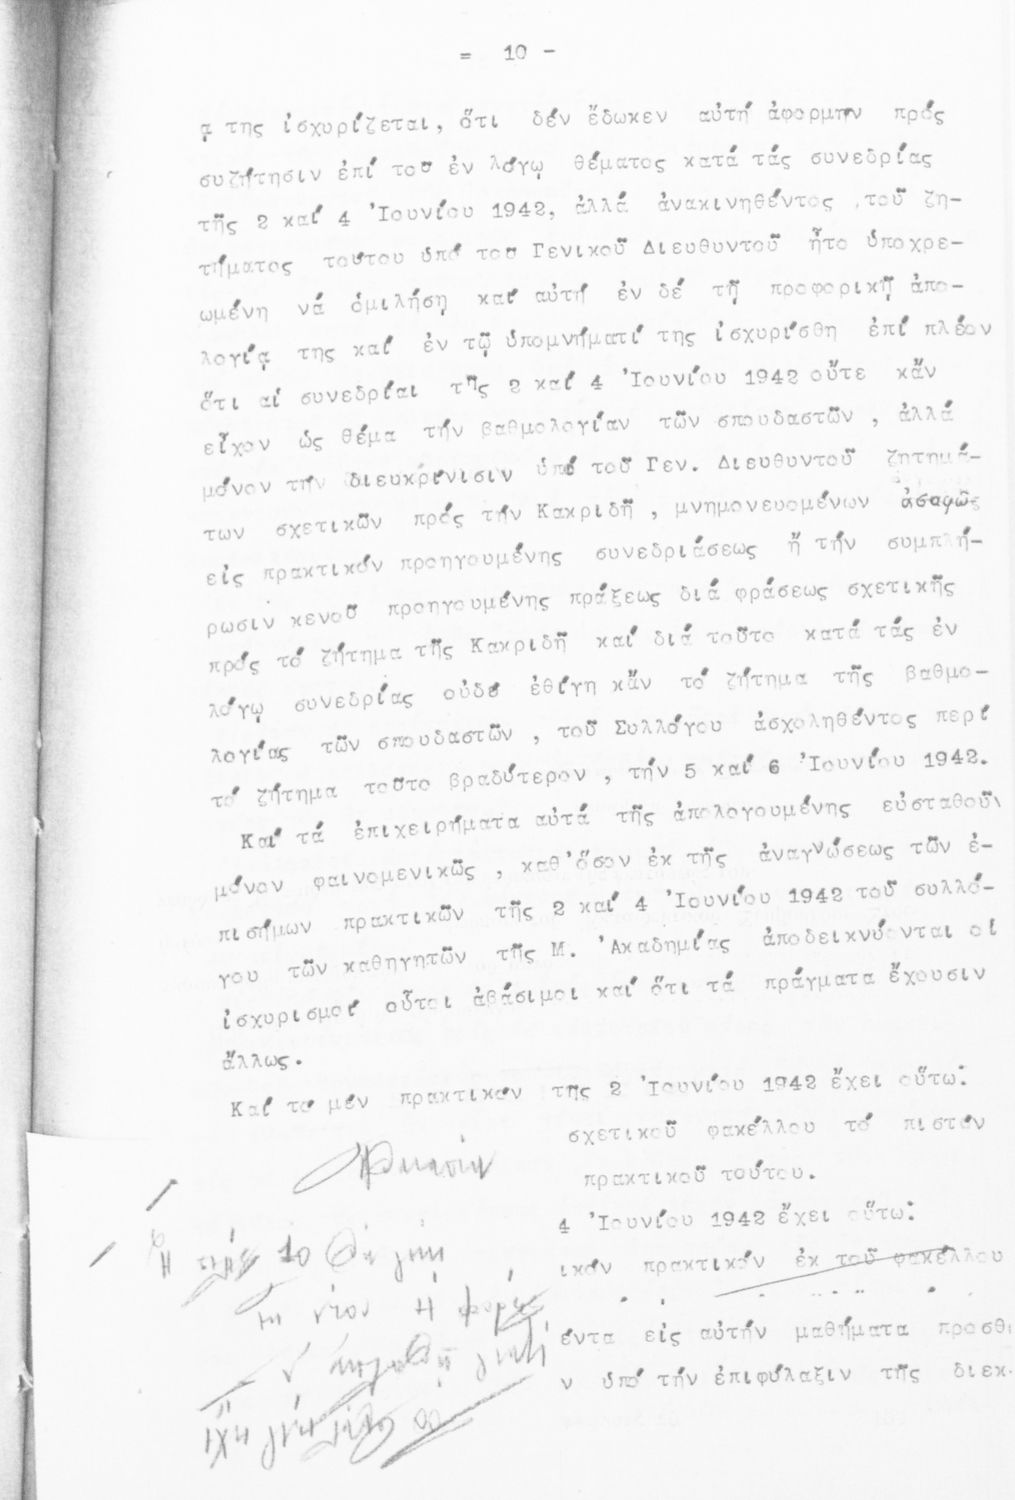 = 10 -
ᾳ της ἰσχυρίζεται, ὅτι δέν ἔδωκεν αὐτή ἀφορμην πρός
συζήτησιν ἐπί του ἐν λόγῳ θέματος κατά τάς συνεδρίας
τῆς 2 καί 4 Ἰουνίου 1942, ἀλλά ἀνακινηθέντος τοῦ ζη-
τήματος τούτου ὑπό του Γενικοῦ Διευθυντοῦ ἦτο ὑποχρε-
ωμένη νά ὁμιλήσῃ καί αὐτή ἐν δέ τῇ προφορικῇ ἀπο-
λογίᾳ της καί ἐν τῷ ὑπομνήματί της ἰσχυρίσθη ἐπί πλέον
ὅτι αἱ συνεδρίαι τῆς 2 καί 4 Ἰουνίου 1942 οὔτε κἄν
εἶχον ὡς θέμα τήν βαθμολογίαν τῶν σπουδαστῶν , ἀλλά
μόνον τήν διευκρίνισιν ὑπό τοῦ Γεν. Διευθυντοῦ ζητημά-
των σχετικῶν πρός τήν Κακριδῆ , μνημονευομένων ἀσαφῶς
εἰς πρακτικόν προηγουμένης συνεδριάσεως ἤ τήν συμπλή-
ρωσιν κενοῦ προηγουμένης πράξεως διά φράσεως σχετικῆς
πρός τό ζήτημα τῆς Κακριδῆ καί διά τοῦτο κατά τάς ἐν
λόγῳ συνεδρίας οὐδέ ἐθίγη κἄν τό ζήτημα τῆς βαθμο-
λογίας τῶν σπουδαστῶν , τοῦ Συλλόγου ἀσχοληθέντος περί
τό ζήτημα τοῦτο βραδύτερον , τήν 5 καί 6 Ἰουνίου 1942.
Καί τά ἐπιχειρήματα αὐτά τῆς ἀπολογουμένης εὐσταθοῦν
μόνον φαινομενικῶς , καθ'ὅσον ἐκ τῆς ἀναγνώσεως τῶν ἐ-
πισήμων πρακτικῶν τῆς 2 καί 4 Ἰουνίου 1942 τοῦ συλλό-
γου τῶν καθηγητῶν τῆς Μ. Ἀκαδημίας ἀποδεικνύονται οἱ
ἰσχυρισμοί οὗτοι ἀβάσιμοι καί ὅτι τά πράγματα ἔχουσιν
ἄλλως.
Καί το μέν πρακτικόν της 2 Ἰουνίου 1942 ἔχει οὕτω:
σχετικοῦ φακέλλου τό πιστόν
πρακτικοῦ τούτου.
4 Ἰουνίου 1942 ἔχει οὕτω:
ικόν πρακτικόν ἐκ τοῦ φακέλλου
έντα εἰς αὐτήν μαθήματα προσθ
ν ὑπό τήν ἐπιφύλαξιν τῆς διεκ-
10